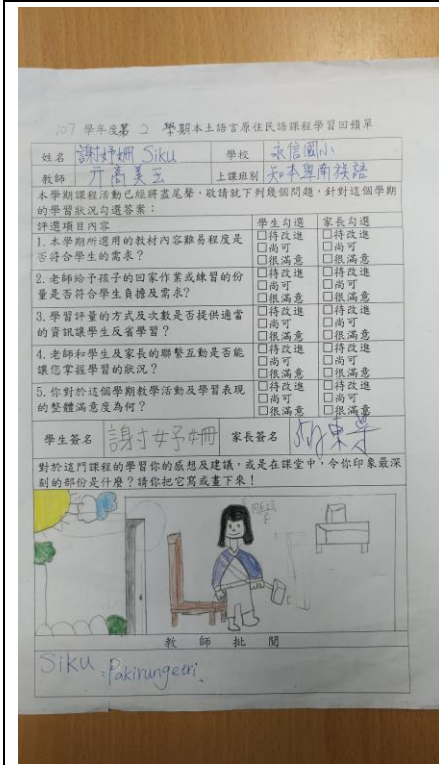 107 學年度第 2 學期本土語言原住民語課程學習回饋單
姓名 謝妤姍 Siku 學校 永信國小
教師 亓高美玉 上課班別 知本卑南族語
本學期課程活動已經將盡尾聲,敬請就下列幾個問題,針對這個學期
的學習狀況勾選答案:
評選項目內容 學生勾選 家長勾選
1. 本學期所選用的教材內容難易程度是
否符合學生的需求?
□待改進 □待改進
□尚可 □尚可
□很滿意 □很滿意
2. 老師給予孩子的回家作業或練習的份
量是否符合學生負擔及需求?
□待改進 □待改進
□尚可 □尚可
□很滿意 □很滿意
3. 學習評量的方式及次數是否提供適當
的資訊讓學生反省學習?
□待改進 □待改進
□尚可 □尚可
□很滿意 □很滿意
4. 老師和學生及家長的聯繫互動是否能
讓您掌握學習的狀況?
□待改進 □待改進
□尚可 □尚可
□很滿意 □很滿意
5. 你對於這個學期教學活動及學習表現
的整體滿意度為何?
□待改進 □待改進
□尚可 □尚可
□很滿意 □很滿意
學生簽名 謝妤姍 家長簽名
對於這門課程的學習你的感想及建議,或是在課堂中,令你印象最深
刻的部份是什麼?請你把它寫或畫下來!
教 師 批 閱
Siku : Pakirungetri.